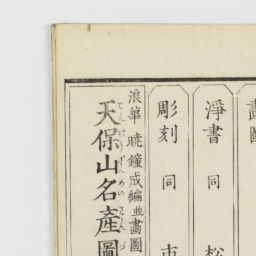 畫圖
淨書 同 松
彫刻 同 市
浪華 曉鐘成編並畫圖
天保山名產圖